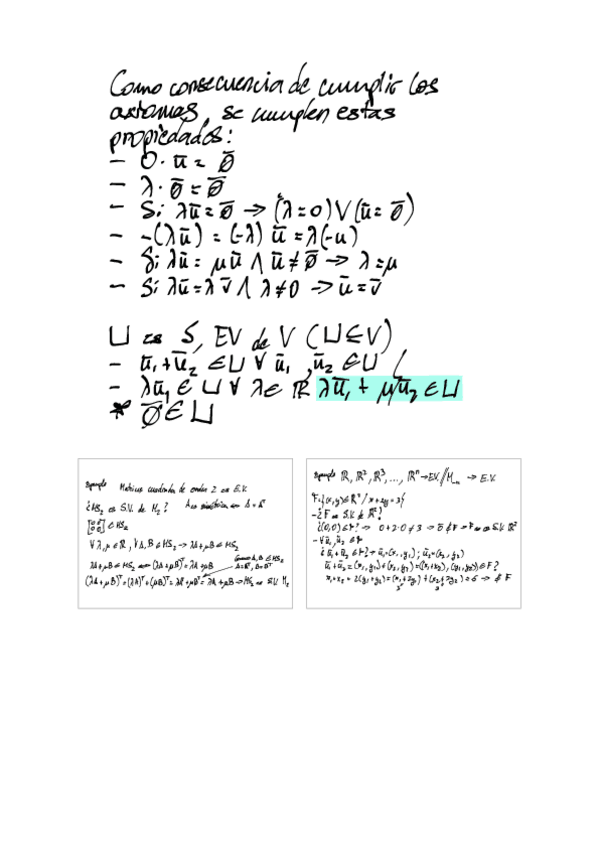 Como consecuencia de cumplir los
axiomas, se cumplen estas
propiedades:
- 0·ū = Ø̄
- λ·Ø̄ = Ø̄
- Si λū = Ø̄ → (λ=0) V (ū = Ø̄)
- -(λū) = (-λ) ū = λ(-u)
- Si λū = μū Λ ū ≠ Ø̄ → λ = μ
- Si λū = λv̄ Λ λ≠0 → ū = v̄
U es S, EV de V (U ⊆ V)
- ū₁+ū₂ ∈ U ∀ ū₁, ū₂ ∈ U /
- λū₁ ∈ U ∀ λ ∈ ℝ λū₁ + μū₂ ∈ U
* Ø̄ ∈ U
Ejemplo Matrices cuadradas de orden 2 es E.V.
¿HS₂ es S.V. de M₂? A es simétrica A = Aᵀ
[0 0
0 0] ∈ HS₂
∀ λ, μ ∈ ℝ, ∀ A, B ∈ HS₂ → λA+μB ∈ HS₂
λA+μB ∈ HS₂ (λA+μB)ᵀ = λA+μB
Como A, B ∈ HS₂
A=Aᵀ, B=Bᵀ
(λA+μB)ᵀ = (λA)ᵀ+(μB)ᵀ = λAᵀ+μBᵀ = λA+μB → HS₂ es S.V. M₂
Ejemplo ℝ, ℝ², ℝ³, ..., ℝⁿ → E.V. // Mₙ → E.V.
F={(x,y) ∈ ℝ² / x+2y=3}
- ¿F es S.V. de ℝ²?
¿(0,0) ∈ F? → 0+2·0 ≠ 3 → Ō ∉ F → F no es S.V. ℝ²
- ∀ ū₁, ū₂ ∈ F
¿ū₁+ū₂ ∈ F? → ū₁=(x₁,y₁); ū₂=(x₂,y₂)
ū₁+ū₂ = (x₁,y₁)+(x₂,y₂) = ((x₁+x₂), (y₁+y₂)) ∈ F?
x₁+x₂+2(y₁+y₂) = (x₁+2y₁)+(x₂+2y₂) = 6 → ∉ F
3 3